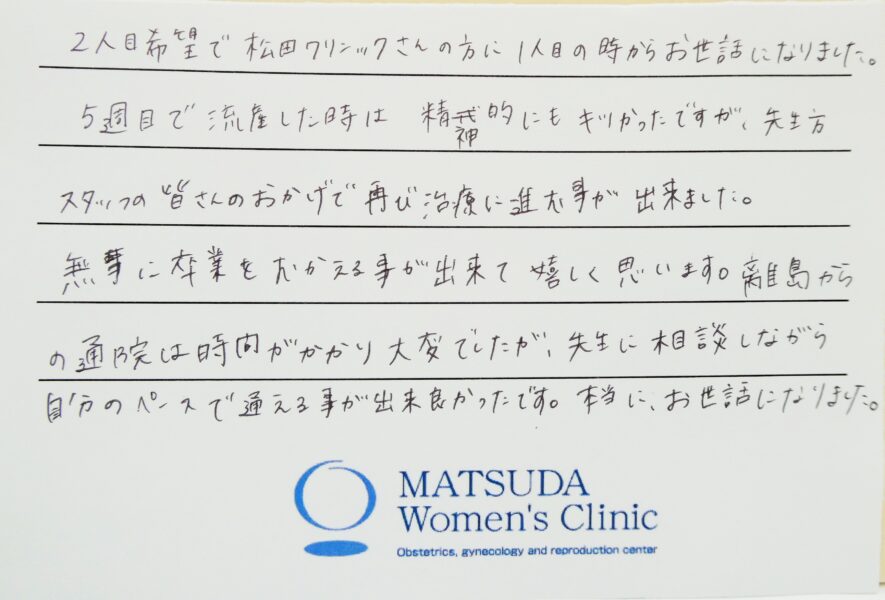 2人目希望で松田クリニックさんの方に1人目の時からお世話になりました。
5週目で流産した時は 精神的にもキツかったですが、先生方
スタッフの皆さんのおかげで再び治療に進む事が出来ました。
無事に卒業をむかえる事が出来て嬉しく思います。離島から
の通院は時間がかかり大変でしたが、先生に相談しながら
自分のペースで通える事が出来良かったです。本当に、お世話になりました。
MATSUDA
Women's Clinic
Obstetrics, gynecology and reproduction center